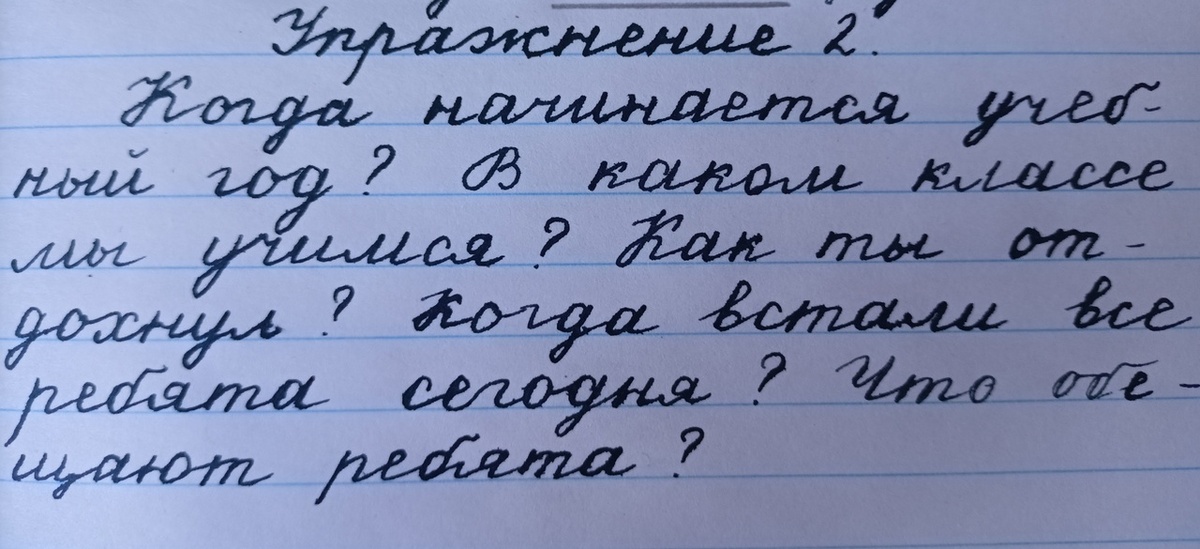 Упражнение 2.
Когда начинается учеб-
ный год? В каком классе
мы учимся? Как ты от-
дохнул? Когда встали все
ребята сегодня? Что обе-
щают ребята?